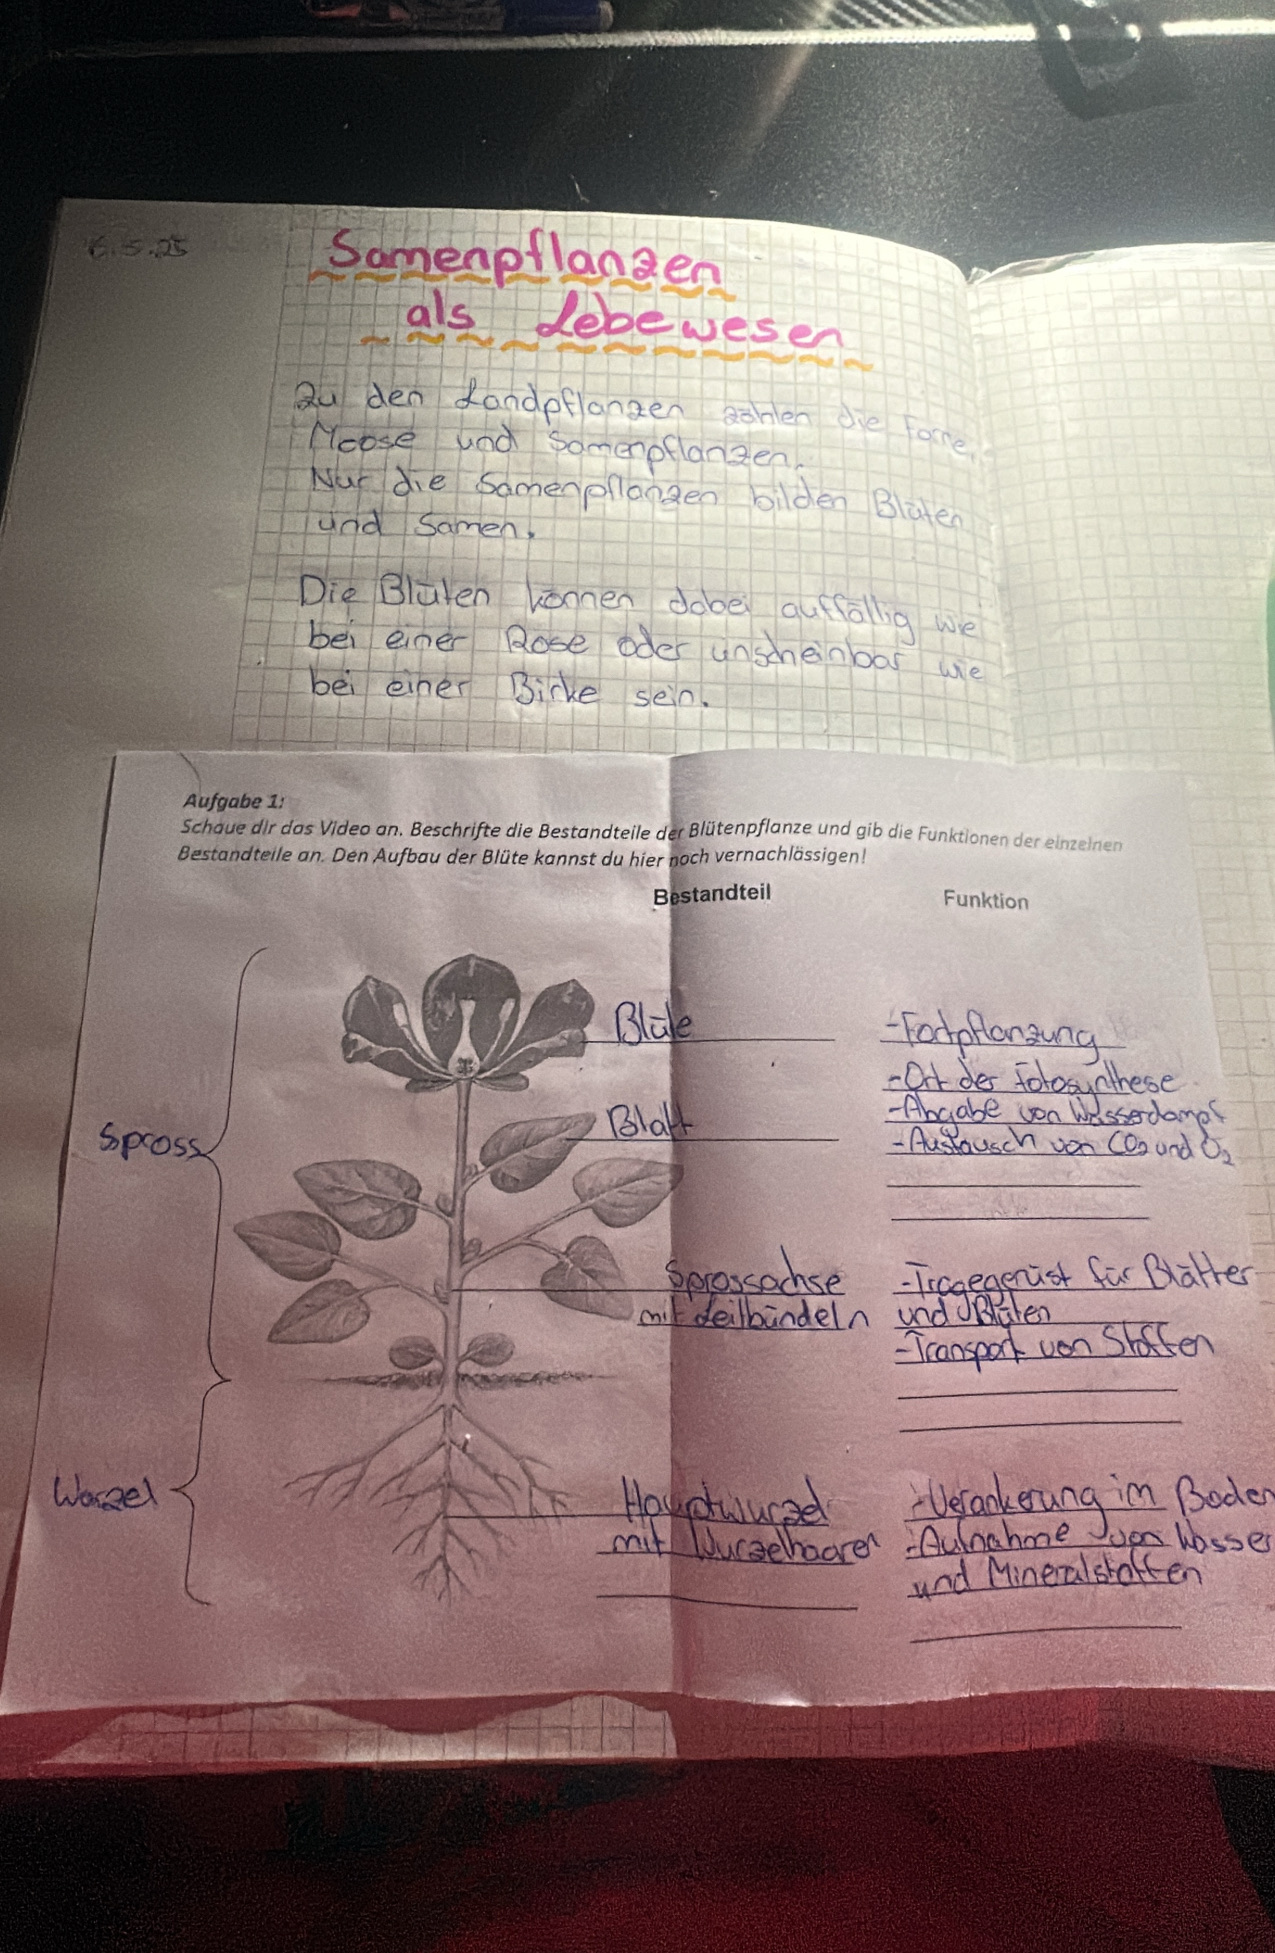 6.5.25
Samenpflanzen
als Lebewesen
Zu den Landpflanzen zählen die Farne,
Moose und Samenpflanzen.
Nur die Samenpflanzen bilden Blüten
und Samen.
Die Blüten können dabei auffällig wie
bei einer Rose oder unscheinbar wie
bei einer Birke sein.
Aufgabe 1:
Schaue dir das Video an. Beschrifte die Bestandteile der Blütenpflanze und gib die Funktionen der einzelnen
Bestandteile an. Den Aufbau der Blüte kannst du hier noch vernachlässigen!
Bestandteil Funktion
Blüte -Fortpflanzung
-Ort der Fotosynthese
Blatt -Abgabe von Wasserdampf
Spross -Austausch von CO2 und O2
Sprossachse -Tragegerüst für Blätter
mit Leitbündeln und Blüten
-Transport von Stoffen
Wurzel Hauptwurzel -Verankerung im Boden
mit Wurzelhaaren -Aufnahme von Wasser
und Mineralstoffen